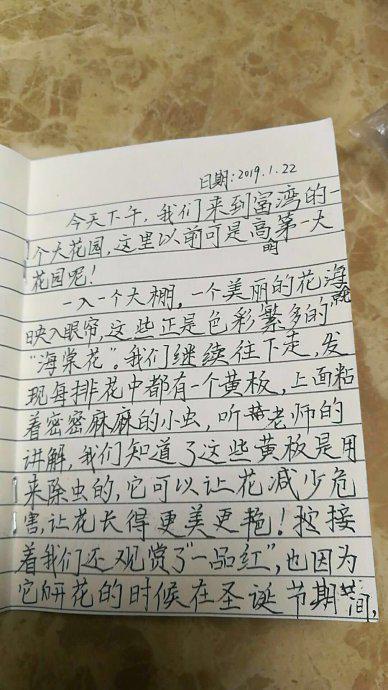 日期:2019.1.22
今天下午,我们来到富湾的一
个大花园,这里以前可是高明的第一大
花园呢!
一入一个大棚,一个美丽的花海就
映入眼帘,这些正是色彩繁多的
“海棠花”。我们继续往下走,发
现每排花中都有一个黄板,上面粘
着密密麻麻的小虫,听老师的
讲解,我们知道了这些黄板是用
来除虫的,它可以让花减少危
害,让花长得更美更艳!接
着我们还观赏了“一品红”,也因为
它开花的时候在圣诞节期间,